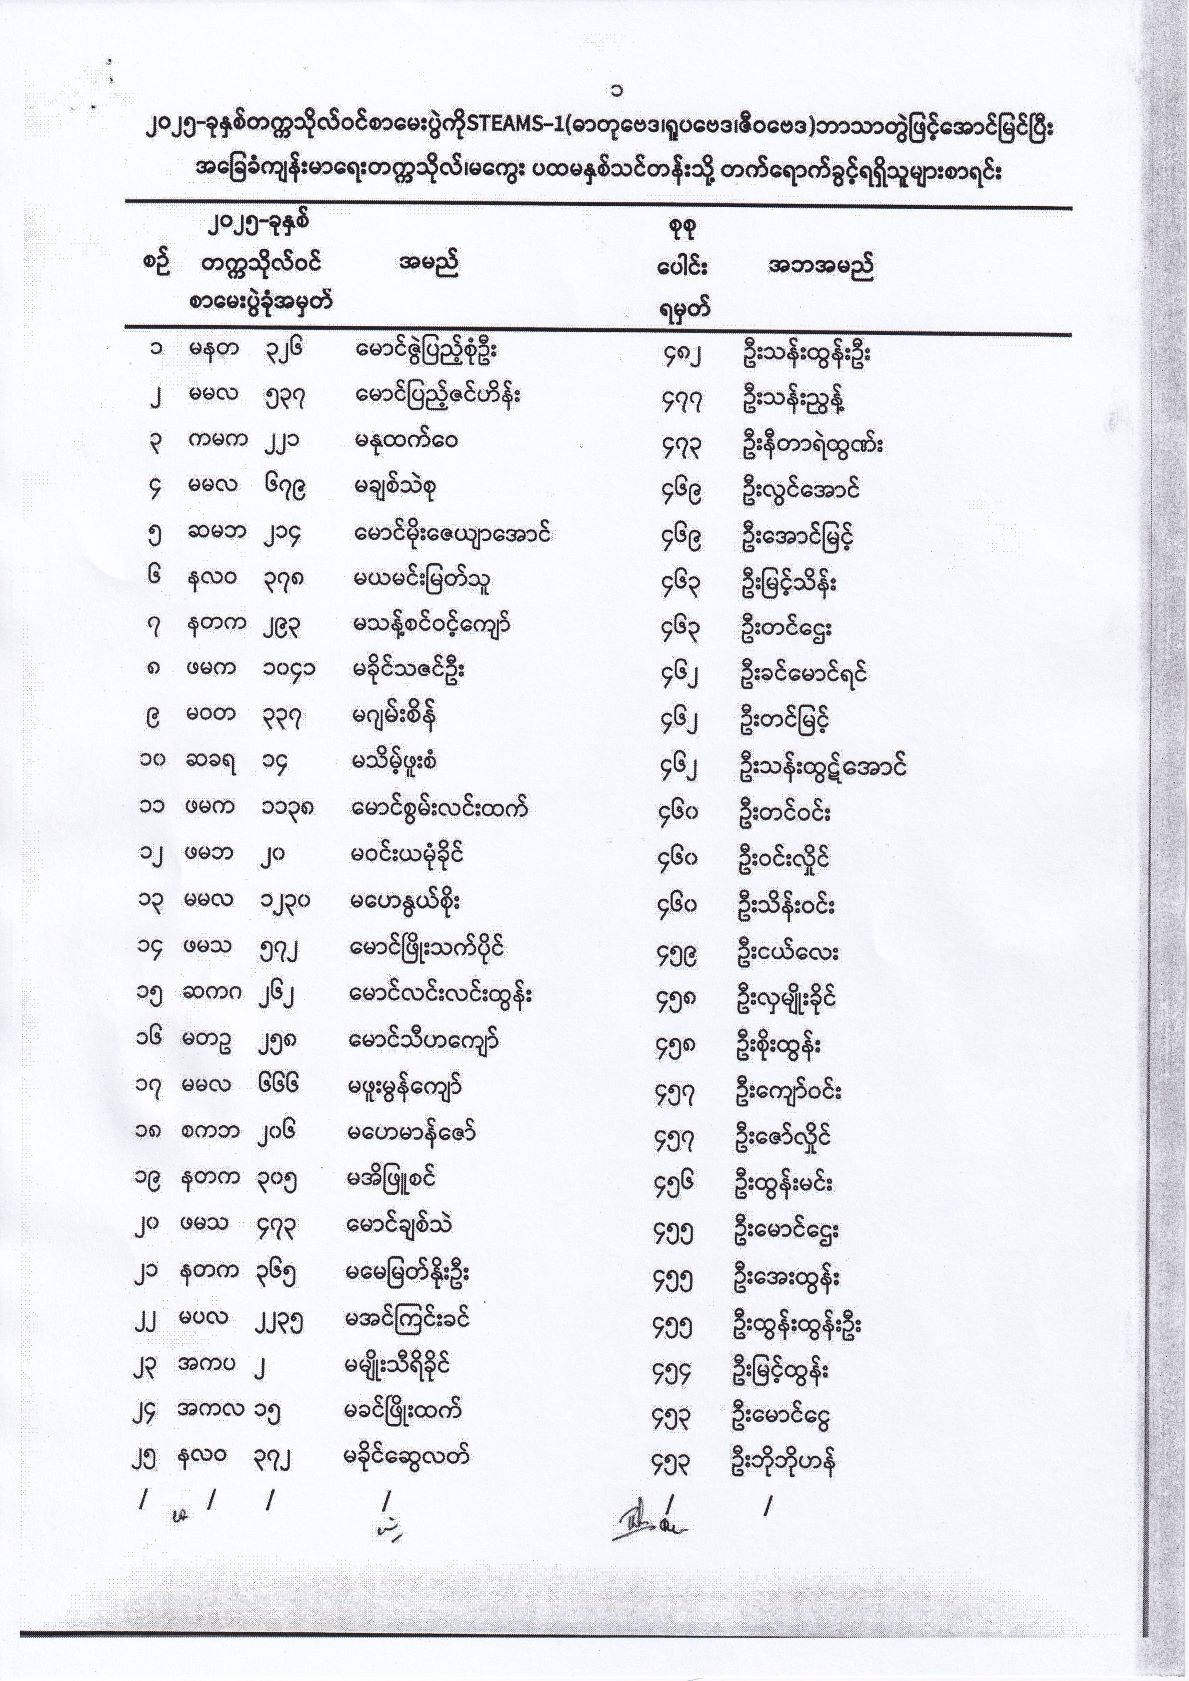 ၁
၂၀၂၅-ခုနှစ်တက္ကသိုလ်ဝင်စာမေးပွဲကိုSTEAMS-1(ဓာတုဗေဒ၊ရူပဗေဒ၊ဇီဝဗေဒ)ဘာသာတွဲဖြင့်အောင်မြင်ပြီး
အခြေခံကျန်းမာရေးတက္ကသိုလ်၊မကွေး ပထမနှစ်သင်တန်းသို့ တက်ရောက်ခွင့်ရရှိသူများစာရင်း
၂၀၂၅-ခုနှစ် စုစု
စဉ် တက္ကသိုလ်ဝင် အမည် ပေါင်း အဘအမည်
စာမေးပွဲခုံအမှတ် ရမှတ်
၁ မနတ ၃၂၆ မောင်ဇွဲပြည့်စုံဦး ၄၈၂ ဦးသန်းထွန်းဦး
၂ မမလ ၅၃၇ မောင်ပြည့်ဇင်ဟိန်း ၄၇၇ ဦးသန်းညွန့်
၃ ကမက ၂၂၁ မနုထက်ဝေ ၄၇၃ ဦးနီတာရဲထွဏ်း
၄ မမလ ၆၇၉ မချစ်သဲစု ၄၆၉ ဦးလွင်အောင်
၅ ဆမဘ ၂၁၄ မောင်မိုးဇေယျာအောင် ၄၆၉ ဦးအောင်မြင့်
၆ နလဝ ၃၇၈ မယမင်းမြတ်သူ ၄၆၃ ဦးမြင့်သိန်း
၇ နတက ၂၉၃ မသန့်စင်ဝင့်ကျော် ၄၆၃ ဦးတင်ဌေး
၈ ဖမက ၁၀၄၁ မခိုင်သဇင်ဦး ၄၆၂ ဦးခင်မောင်ရင်
၉ မဝတ ၃၃၇ မဂျမ်းစိန် ၄၆၂ ဦးတင်မြင့်
၁၀ ဆခရ ၁၄ မသိမ့်ဖူးစံ ၄၆၂ ဦးသန်းထွဋ်အောင်
၁၁ ဖမက ၁၁၃၈ မောင်စွမ်းလင်းထက် ၄၆၀ ဦးတင်ဝင်း
၁၂ ဖမဘ ၂၀ မဝင်းယမုံခိုင် ၄၆၀ ဦးဝင်းလှိုင်
၁၃ မမလ ၁၂၃၀ မဟေနွယ်စိုး ၄၆၀ ဦးသိန်းဝင်း
၁၄ ဖမသ ၅၇၂ မောင်ဖြိုးသက်ပိုင် ၄၅၉ ဦးငယ်လေး
၁၅ ဆကဂ ၂၆၂ မောင်လင်းလင်းထွန်း ၄၅၈ ဦးလှမျိုးခိုင်
၁၆ မတဥ ၂၅၈ မောင်သီဟကျော် ၄၅၈ ဦးစိုးထွန်း
၁၇ မမလ ၆၆၆ မဖူးမွန်ကျော် ၄၅၇ ဦးကျော်ဝင်း
၁၈ စကဘ ၂၀၆ မဟေမာန်ဇော် ၄၅၇ ဦးဇော်လှိုင်
၁၉ နတက ၃၀၅ မအိဖြူစင် ၄၅၆ ဦးထွန်းမင်း
၂၀ ဖမသ ၄၇၃ မောင်ချစ်သဲ ၄၅၅ ဦးမောင်ဌေး
၂၁ နတက ၃၆၅ မမေမြတ်နိုးဦး ၄၅၅ ဦးအေးထွန်း
၂၂ မပလ ၂၂၃၅ မအင်ကြင်းခင် ၄၅၅ ဦးထွန်းထွန်းဦး
၂၃ အကပ ၂ မမျိုးသီရိခိုင် ၄၅၄ ဦးမြင့်ထွန်း
၂၄ အကလ ၁၅ မခင်ဖြိုးထက် ၄၅၃ ဦးမောင်ငွေ
၂၅ နလဝ ၃၇၂ မခိုင်ဆွေလတ် ၄၅၃ ဦးဘိုဘိုဟန်
/ / / / / /